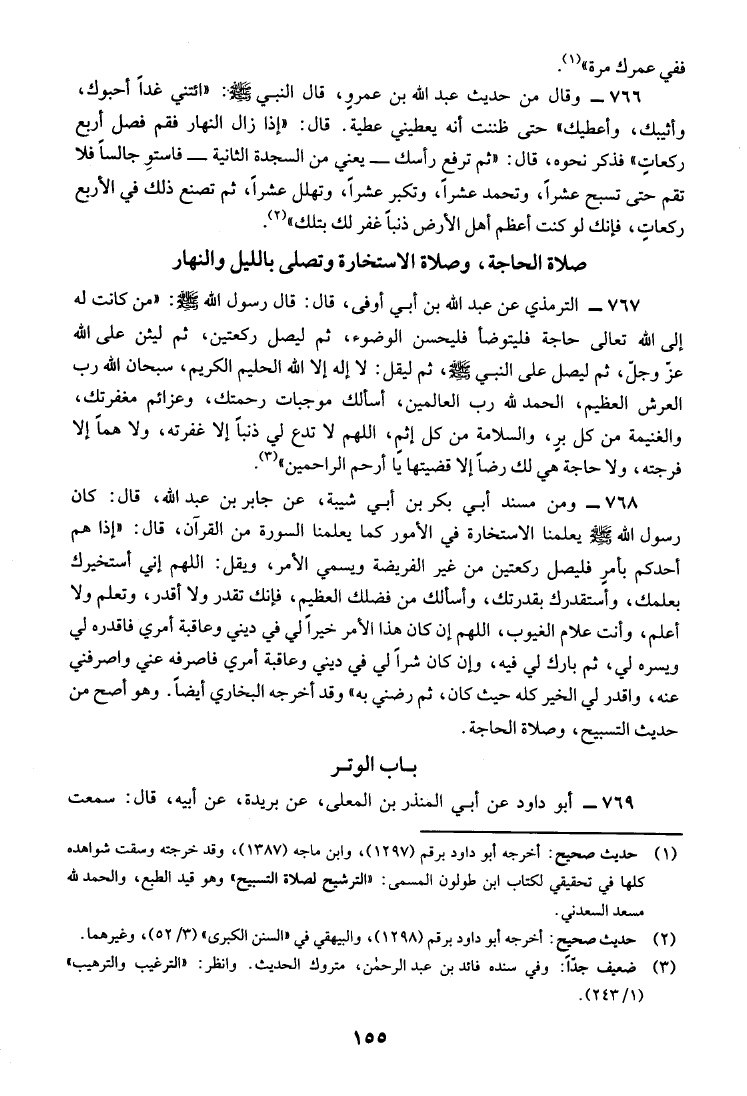 ففي عمرك مرة»(١).
٧٦٦ ــ وقال من حديث عبد الله بن عمرو، قال النبي ﷺ: «ائتني غداً أحبوك،
وأثيبك، وأعطيك» حتى ظننت أنه يعطيني عطية. قال: «إذا زال النهار فقم فصل أربع
ركعاتٍ» فذكر نحوه، قال: «ثم ترفع رأسك ــ يعني من السجدة الثانية ــ فاستوِ جالساً فلا
تقم حتى تسبح عشراً، وتحمد عشراً، وتكبر عشراً، وتهلل عشراً، ثم تصنع ذلك في الأربع
ركعاتٍ، فإنك لو كنت أعظم أهل الأرض ذنباً غفر لك بتلك»(٢).
صلاة الحاجة، وصلاة الاستخارة وتصلى بالليل والنهار
٧٦٧ ــ الترمذي عن عبد الله بن أبي أوفى، قال: قال رسول الله ﷺ: «من كانت له
إلى الله تعالى حاجة فليتوضأ فليحسن الوضوء، ثم ليصل ركعتين، ثم ليثن على الله
عزّ وجلّ، ثم ليصل على النبي ﷺ، ثم ليقل: لا إله إلا الله الحليم الكريم، سبحان الله رب
العرش العظيم، الحمد لله رب العالمين، أسألك موجبات رحمتك، وعزائم مغفرتك،
والغنيمة من كل برٍ، والسلامة من كل إثمٍ، اللهم لا تدع لي ذنباً إلا غفرته، ولا هماً إلا
فرجته، ولا حاجة هي لك رضاً إلا قضيتها يا أرحم الراحمين»(٣).
٧٦٨ ــ ومن مسند أبي بكر بن أبي شيبة، عن جابر بن عبد الله، قال: كان
رسول الله ﷺ يعلمنا الاستخارة في الأمور كما يعلمنا السورة من القرآن، قال: «إذا هم
أحدكم بأمرٍ فليصل ركعتين من غير الفريضة ويسمي الأمر، ويقل: اللهم إني أستخيرك
بعلمك، وأستقدرك بقدرتك، وأسألك من فضلك العظيم، فإنك تقدر ولا أقدر، وتعلم ولا
أعلم، وأنت علام الغيوب، اللهم إن كان هذا الأمر خيراً لي في ديني وعاقبة أمري فاقدره لي
ويسره لي، ثم بارك لي فيه، وإن كان شراً لي في ديني وعاقبة أمري فاصرفه عني واصرفني
عنه، واقدر لي الخير كله حيث كان، ثم رضني به» وقد أخرجه البخاري أيضاً. وهو أصح من
حديث التسبيح، وصلاة الحاجة.
بـاب الوتـر
٧٦٩ ــ أبو داود عن أبي المنذر بن المعلى، عن بريدة، عن أبيه، قال: سمعت
(١) حديث صحيح: أخرجه أبو داود برقم (١٢٩٧)، وابن ماجه (١٣٨٧)، وقد خرجته وسقت شواهده
كلها في تحقيقي لكتاب ابن طولون المسمى: «الترشيح لصلاة التسبيح» وهو قيد الطبع، والحمد لله
مسعد السعدني.
(٢) حديث صحيح: أخرجه أبو داود برقم (١٢٩٨)، والبيهقي في «السنن الكبرى» (٥٢/٣)، وغيرهما.
(٣) ضعيف جدّاً: وفي سنده فائد بن عبد الرحمٰن، متروك الحديث. وانظر: «الترغيب والترهيب»
(٢٤٣/١).
١٥٥